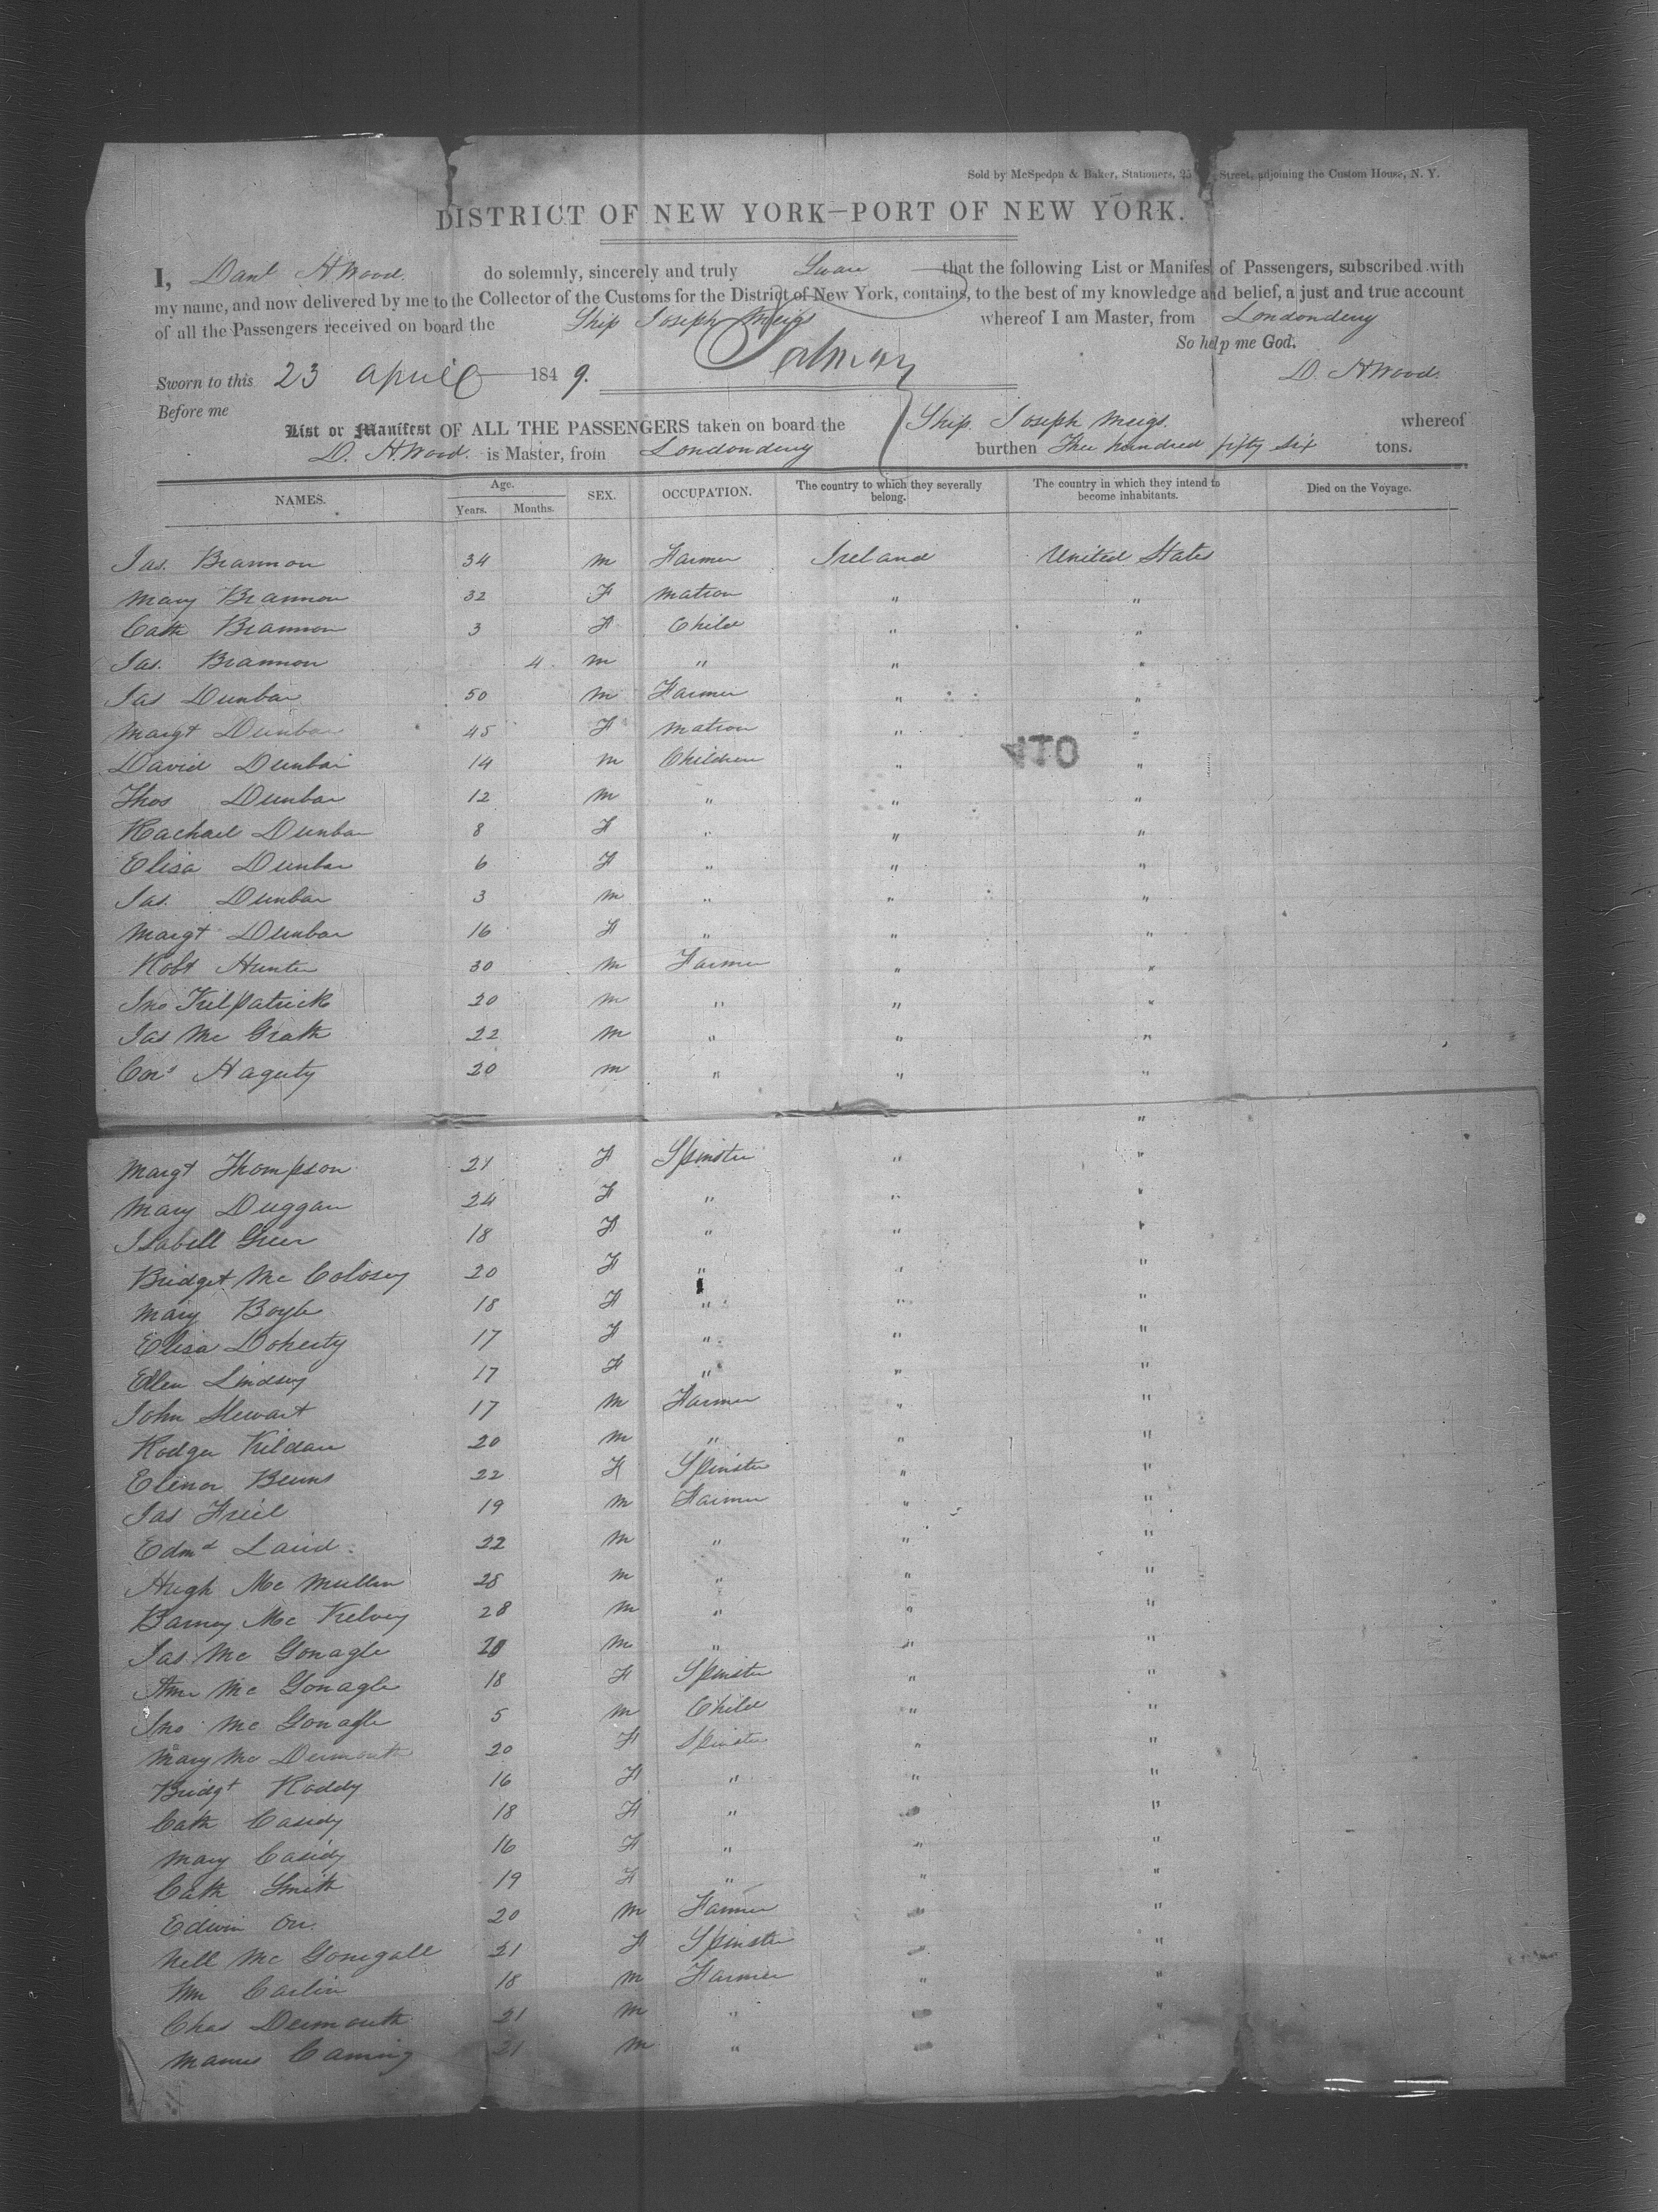 Sold by McSpedon & Baker, Stationers, 25 Street, adjoining the Custom House, N. Y.
DISTRICT OF NEW YORK—PORT OF NEW YORK.
I, Danl H. Wood. do solemnly, sincerely and truly Swear that the following List or Manifest of Passengers, subscribed with
my name, and now delivered by me to the Collector of the Customs for the District of New York, contains, to the best of my knowledge and belief, a just and true account
of all the Passengers received on board the Ship Joseph Meigs whereof I am Master, from Londonderry
So help me God.
Sworn to this 23 April 1849. D. H. Wood.
Before me
List or Manifest OF ALL THE PASSENGERS taken on board the Ship Joseph Meigs. whereof
D. H. Wood. is Master, from Londonderry burthen Three hundred fifty six tons.
NAMES. Age. Years. Months. SEX. OCCUPATION. The country to which they severally belong. The country in which they intend to become inhabitants. Died on the Voyage.
Jas. Brannon 34 m Farmer Ireland United States
Mary Brannon 32 F Matron " "
Cath Brannon 3 F Child " "
Jas. Brannon 4 m " " "
Jas Dunbar 50 m Farmer " "
Margt Dunbar 45 F Matron " "
David Dunbar 14 m Children " "
410
Thos Dunbar 12 m " " "
Rachael Dunbar 8 F " " "
Elisa Dunbar 6 F " " "
Jas. Dunbar 3 m " " "
Margt Dunbar 16 F " " "
Robt Hunter 30 m Farmer " "
Jno Kilpatrick 20 m " " "
Jas Mc Grath 22 m " " "
Cors Hagerty 20 m " " "
"
Margt Thompson 21 F Spinster " "
Mary Duggan 24 F " " "
Isabell Greer 18 F " " "
Bridget Mc Colosey 20 F " " "
Mary Boyle 18 F " " "
Elisa Doherty 17 F " " "
Ellen Lindsey 17 F " " "
John Stewart 17 m Farmer " "
Rodger Kildan 20 m " " "
Elenor Beuns 22 F Spinster " "
Jas Friel 19 m Farmer " "
Edmd Laird 22 m " " "
Hugh Mc Mullen 25 m " " "
Barney Mc Kelvey 28 m " " "
Jas Mc Gonagle 20 m " " "
Ann Mc Gonagle 18 F Spinster " "
Jno Mc Gonagle 5 m Child " "
Mary Mc Dermouth 20 F Spinster " "
Bridgt Roddy 16 F " " "
Cath Casidy 18 F " " "
Mary Casidy 16 F " " "
Cath Smith 19 F " " "
Edwin Orr 20 m Farmer " "
Nell Mc Gonegall 21 F Spinster " "
Wm Carlin 18 m Farmer " "
Chas Dermouth 21 m " " "
Manus Caming 21 m " "